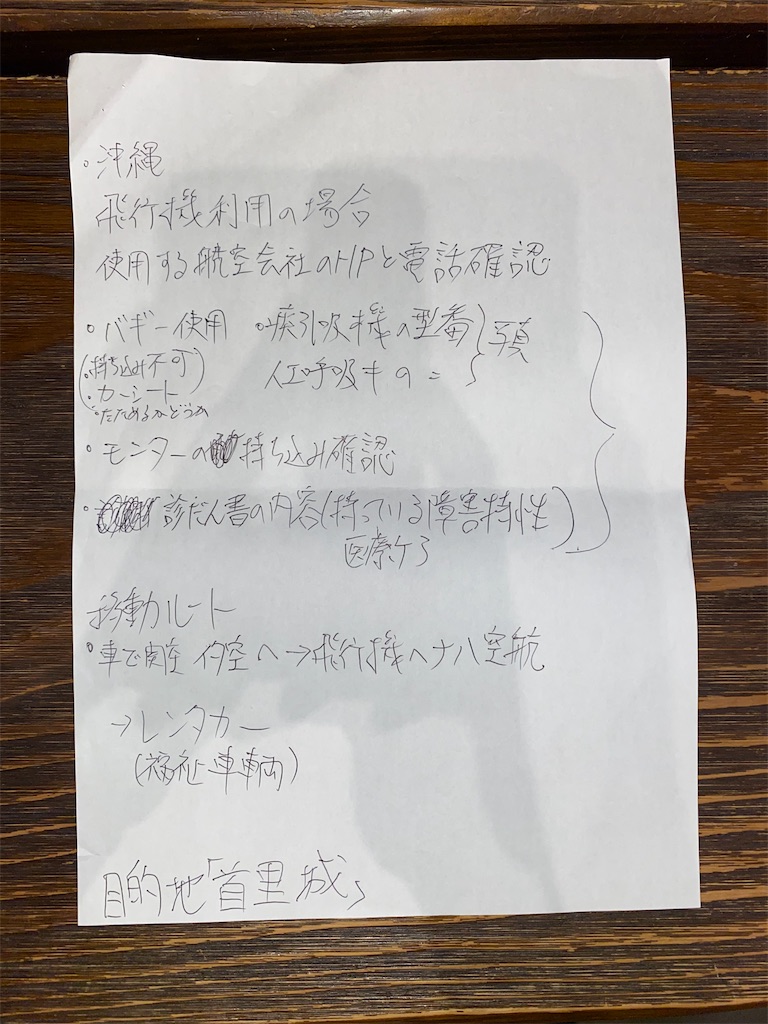 ・沖縄
飛行機利用の場合
使用する航空会社のHPと電話確認
・バギー使用 ・痰引吸機の型番
(・持ち込み不可 人工呼吸キの 〃 } 預
・カーシート)
・たためるかどうか
・モンターの持ち込み確認
・診だん書の内容(持っている障害の特性)
医療ケア
移動ルート
・車で 空へ→飛行機へナハ空航
→レンタカー
(福祉車輌)
目的地「首里城」